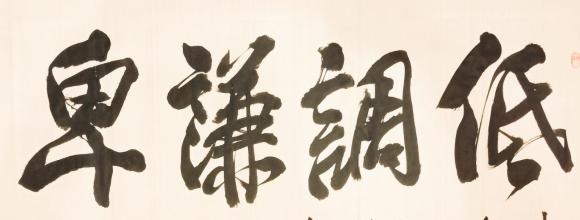 低調謙卑